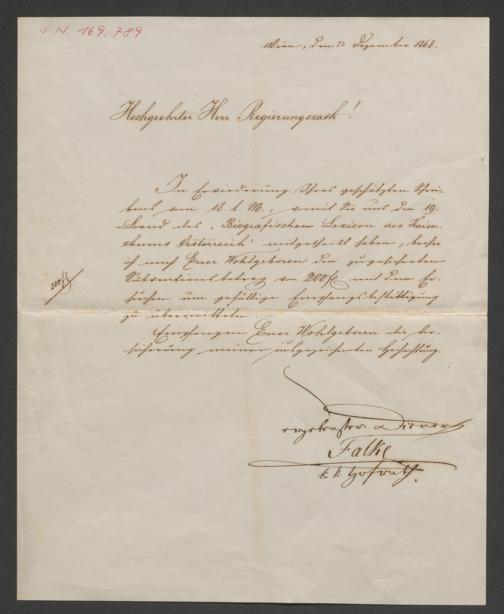 I. N. 169.789
Wien, den 23 Dezember 1868.
Hochgeehrter Herr Regierungsrath!
In Erwiederung Ihres geschätzten Schrei-
bens vom 18. l. M., womit Sie uns den 19.
Band des „Biografischen Lexicon des Kaiser-
thums Österreich“ mitgetheilt haben, beehre
ich mich Euer Wohlgeboren den zugesicherten
Subventionsbetrag von 200 fl mit dem Er-
suchen um gefällige Empfangsbestättigung
zu übermitteln.
Empfangen Euer Wohlgeboren die Ver-
sicherung meiner ausgezeichneten Hochachtung.
200 fl
ergebenster Diener
Falke
k. k. Hofrath.